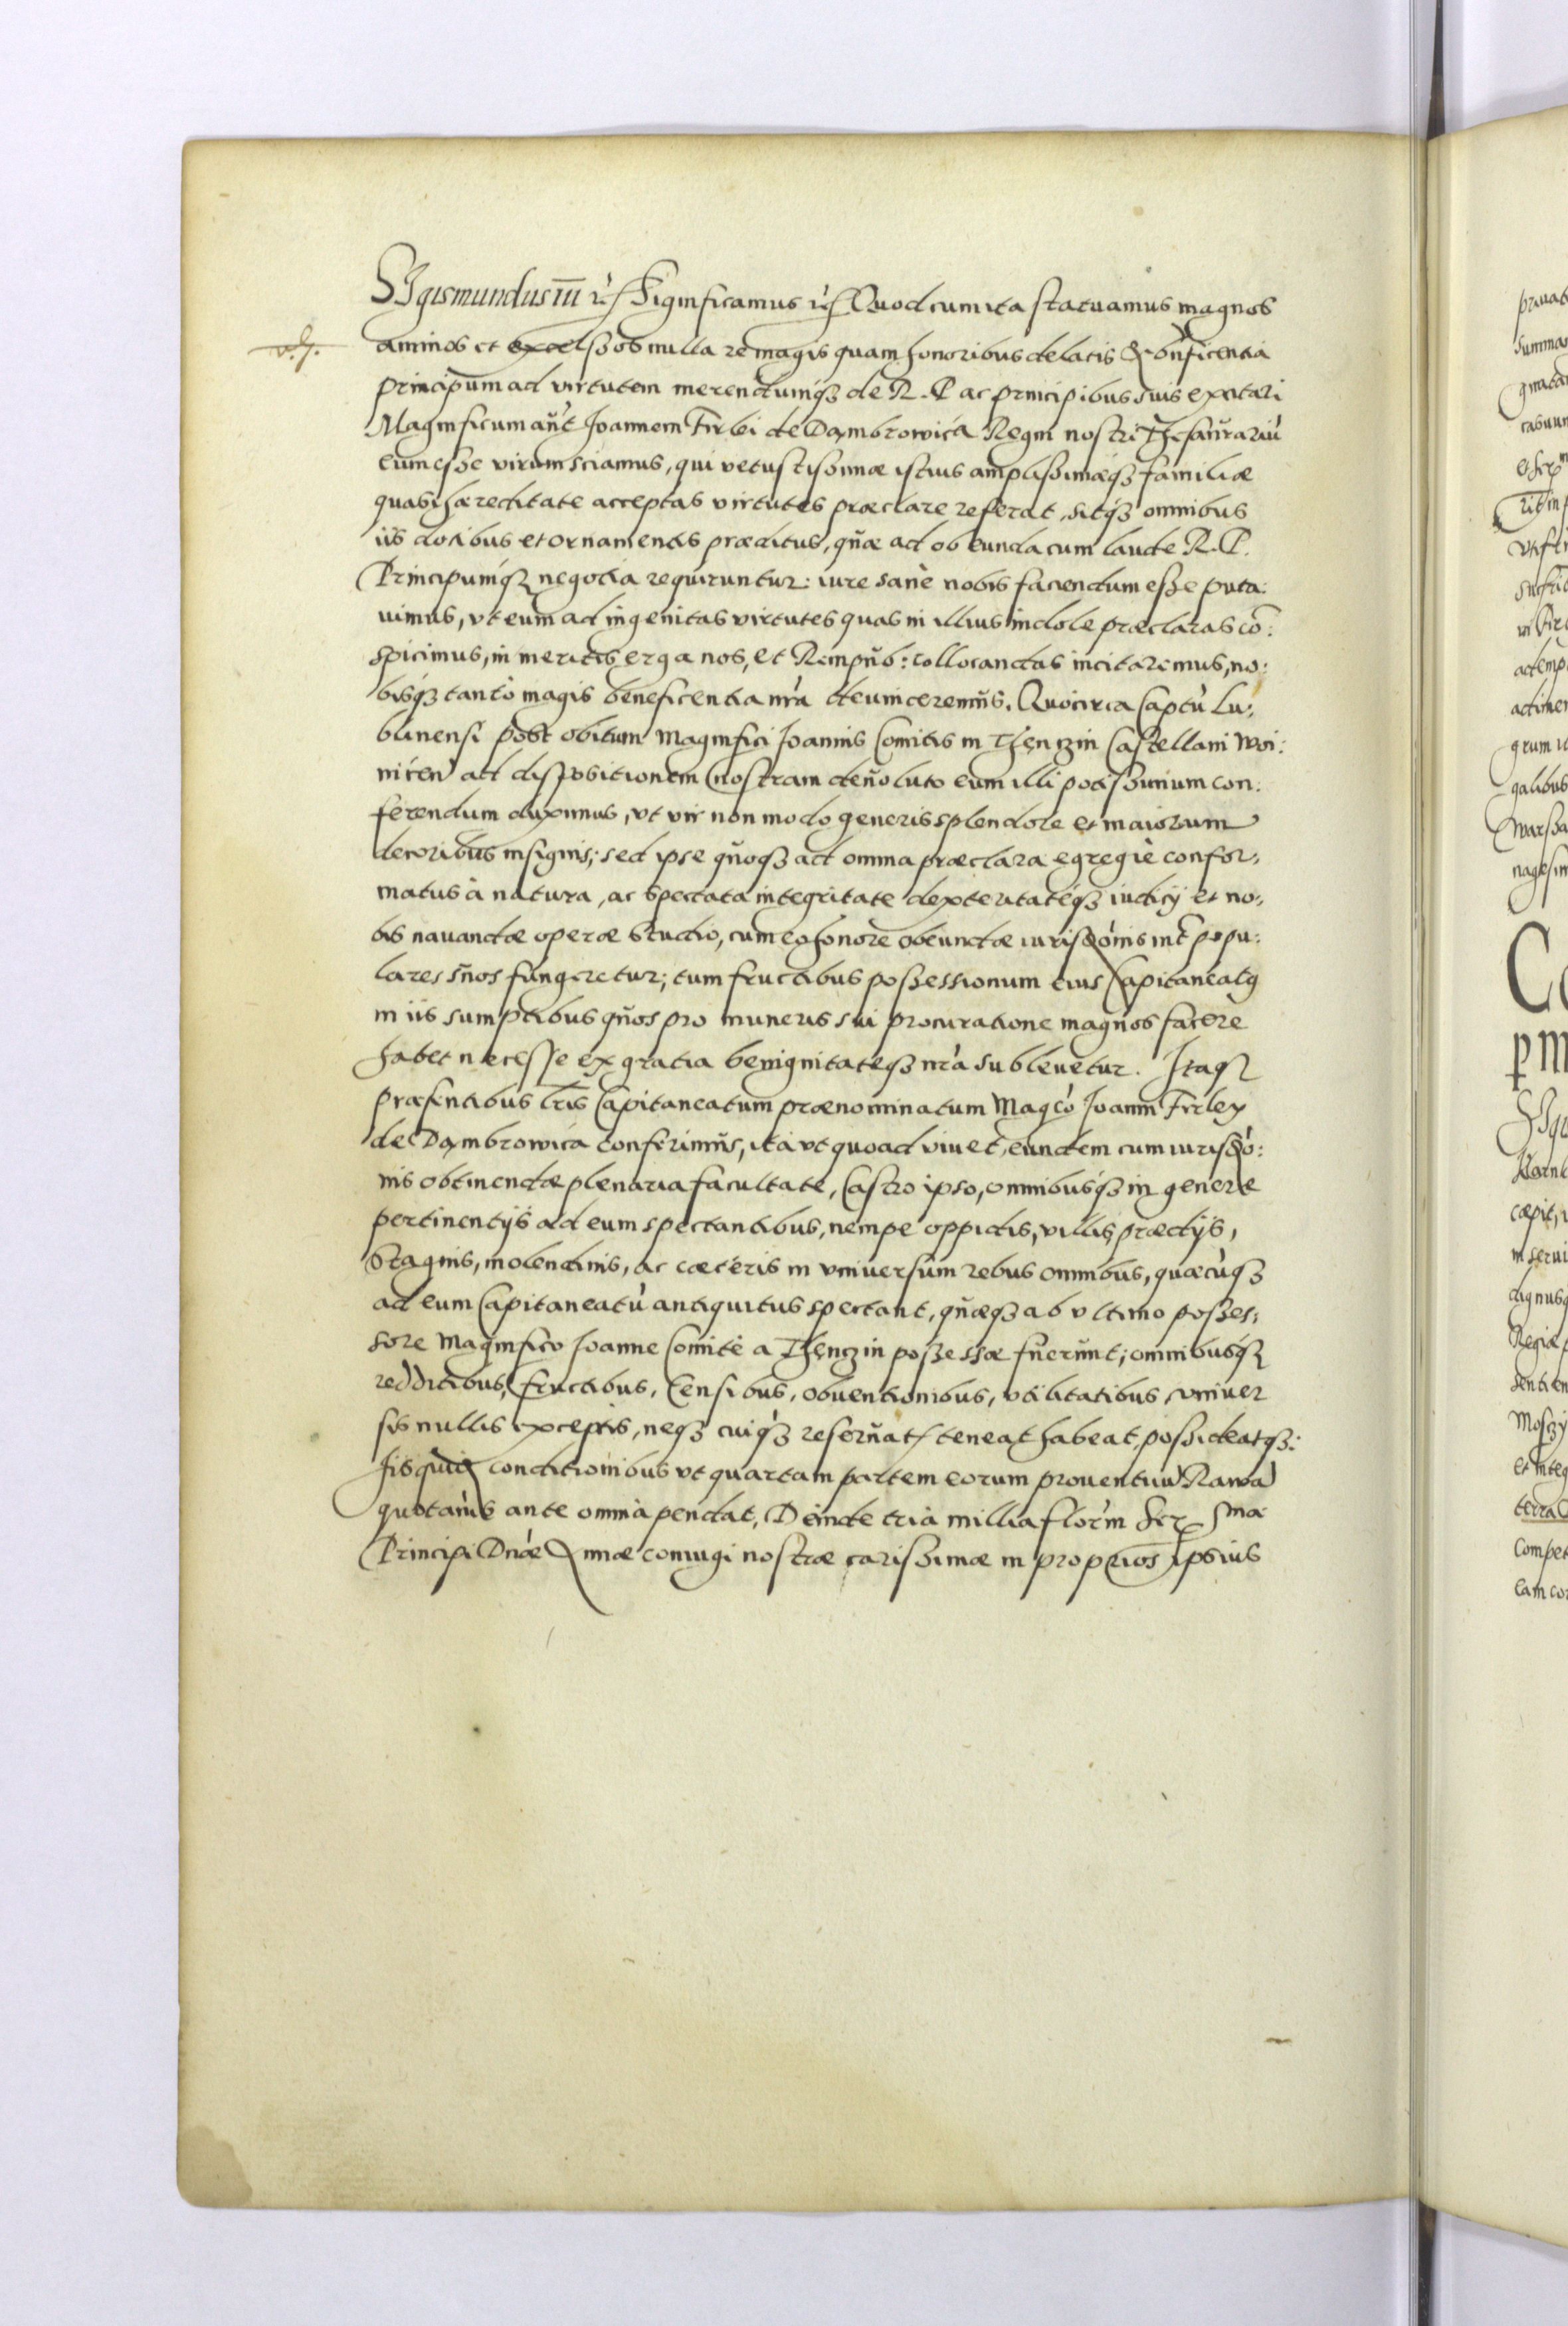 Sigismundus III etc Significamus etc Quod cum ita statuamus magnos
animos et excelsos nulla re magis quam honoribus delatis et bnficentia
principum ad virtutem merendumq3 de R. P. ac principibus suis excitari
Magnificum aut Joannem Firlei de Dambrowica Regni nostri Thesaurariu
eum esse virum sciamus, qui vetustissimæ istius amplissimæq3 familiæ
quasi hæreditate acceptas virtutes præclare referat, sitq3 omnibus
iis dotibus et ornamentis præditus, quæ ad obeunda cum laude R. P.
Principumq3 negotia requiruntur: iure sanè nobis faciendum esse puta:
uimus, vt eum ad ingenitas virtutes quas in illius indole præclaras cō:
spicimus, in meritis erga nos, et Rempub: collocandas incitaremus, no:
bisq3 tantò magis beneficentia nra deuinceremus. Quocirca Captu Lu:
blinensi post obitum Magnifici Joannis Comitis in Thenczin Castellani Woi:
nicen ad dispositionem nostram deuoluto eum illi potissimum con:
ferendum duximus, vt vir non modo generis splendore et maiorum
decoribus insignis; sed ipse quoq3 ad omnia præclara egregiè confor:
matus à natura, ac spectata integritate dexteritateq3 iudicij et no:
bis nauandæ operæ studio, cum eo honore obeundæ iurisdonis int popu:
lares suos fungeretur; tum fructibus possessionum eius Capitaneatq
in iis sumptibus quos pro muneris sui procuratione magnos facere
habet necesse ex gratia benignitateq3 nra subleuetur. Itaq3
præsentibus lris Capitaneatum prænominatum Magco Joanni Firley
de Dambrowica conferimus, ita vt quoad viuet, eundem cum iurisdo:
nis obtinendæ plenaria facultate, Castro ipso, omnibusq3 in genere
pertinentijs ad eum spectantibus, nempe oppidis, villis, prædijs,
Stagnis, molendinis, ac cæteris in vniuersum rebus omnibus, quæcuq3
ad eum Capitaneatu antiquitus spectant, quæq3 ab vltimo posses:
sore Magnifico Joanne Comite a Thenczin possessæ fuerunt; omnibusq3
redditibus, fructibus, Censibus, obuentionibus, vtilitatibus vniuer
sis nullis exceptis, neq3 cuiq3 reseruat teneat habeat, possideatq3:
hisquid conditionibus vt quartam partem eorum prouentuu Rawa
quotanis ante omnia pendat, Deinde tria millia florm Ser sma
Principi Dnæ Annæ coniugi nostræ carissimæ in proprios ipsius